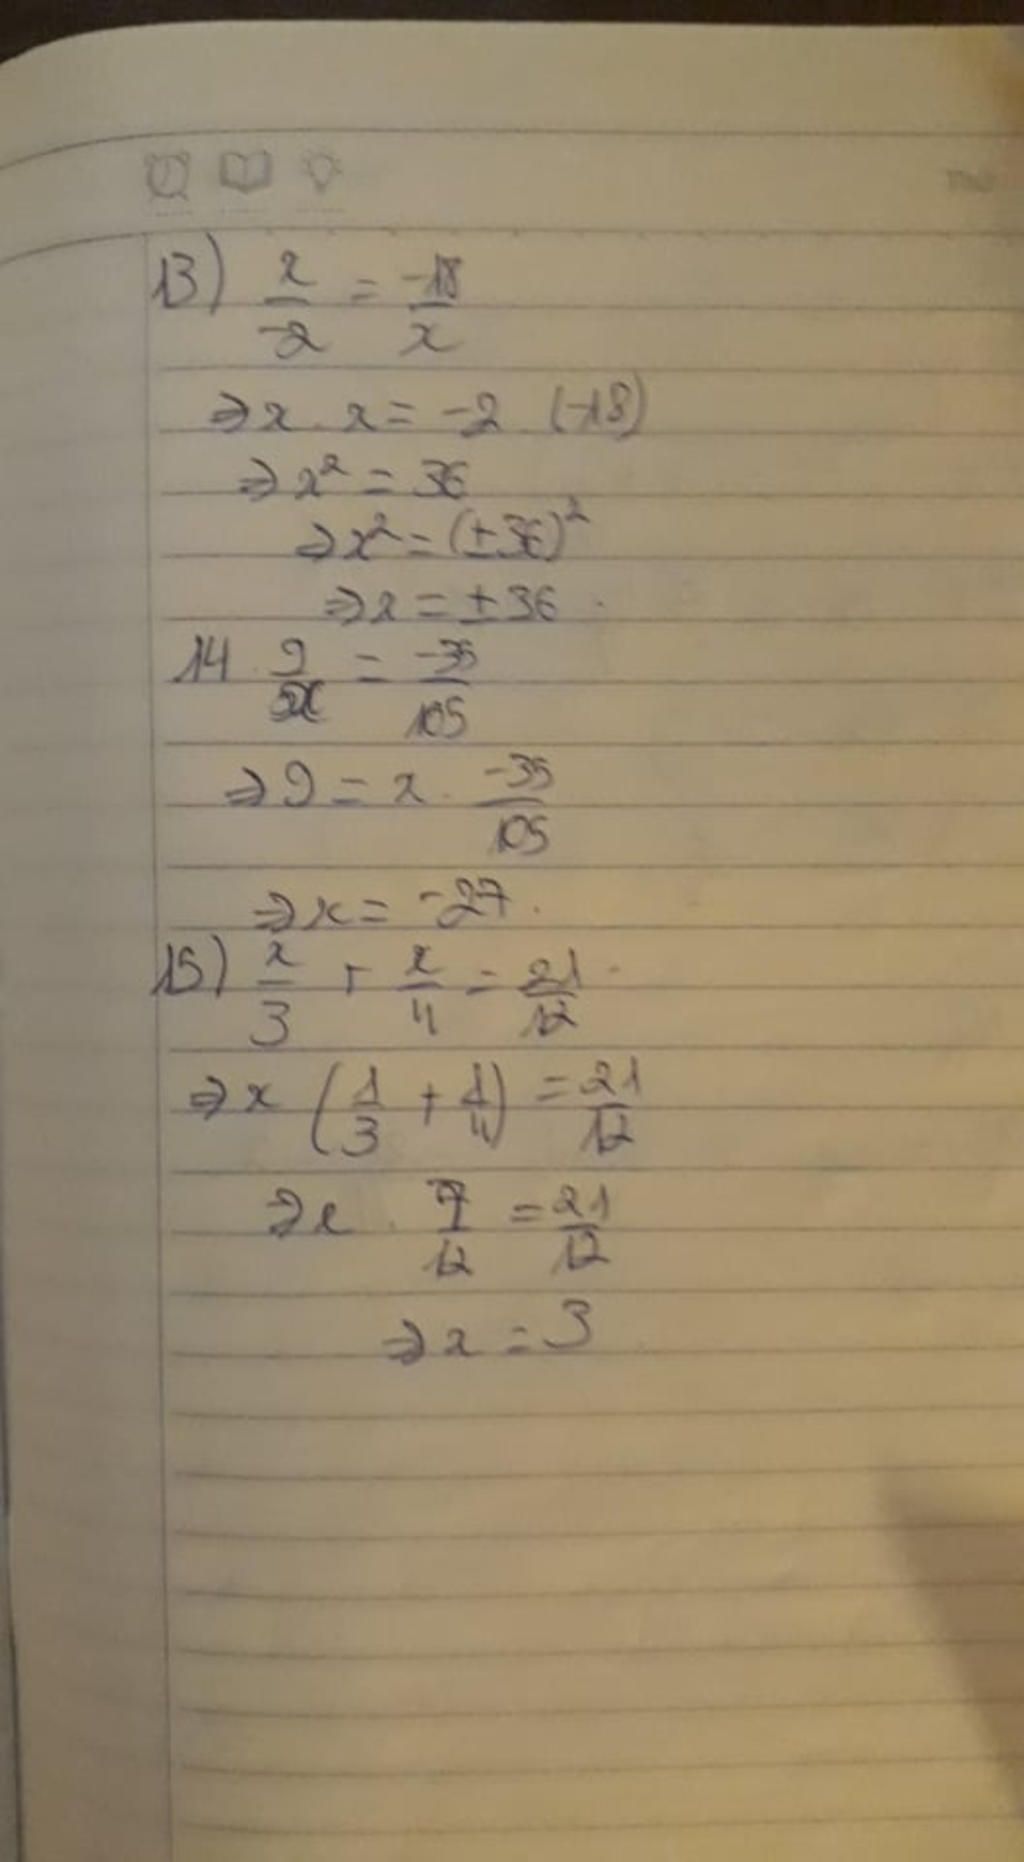 13) x/-2 = -18/x
⇒ x . x = -2 (-18)
⇒ x² = 36
⇒ x² = (±36)²
⇒ x = ±36 .
14 . 9/x = -35/105
⇒ 9 = x . -35/105
⇒ x = -27 .
15) x/3 + x/4 = 21/12 .
⇒ x (1/3 + 1/4) = 21/12
⇒ x . 7/12 = 21/12
⇒ x = 3